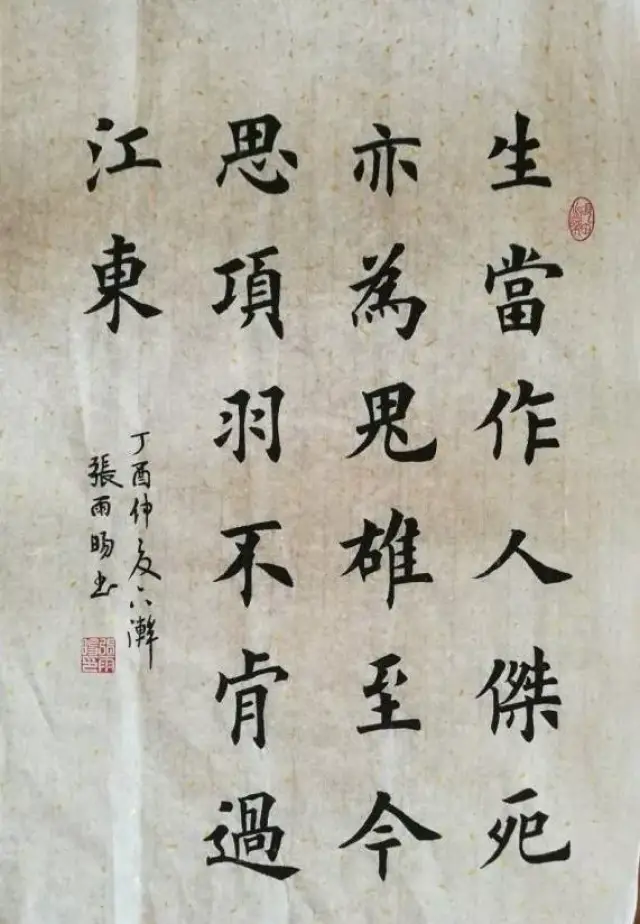 生當作人傑死
亦為鬼雄至今
思項羽不肯過
江東
丁酉仲夏
張雨暘书